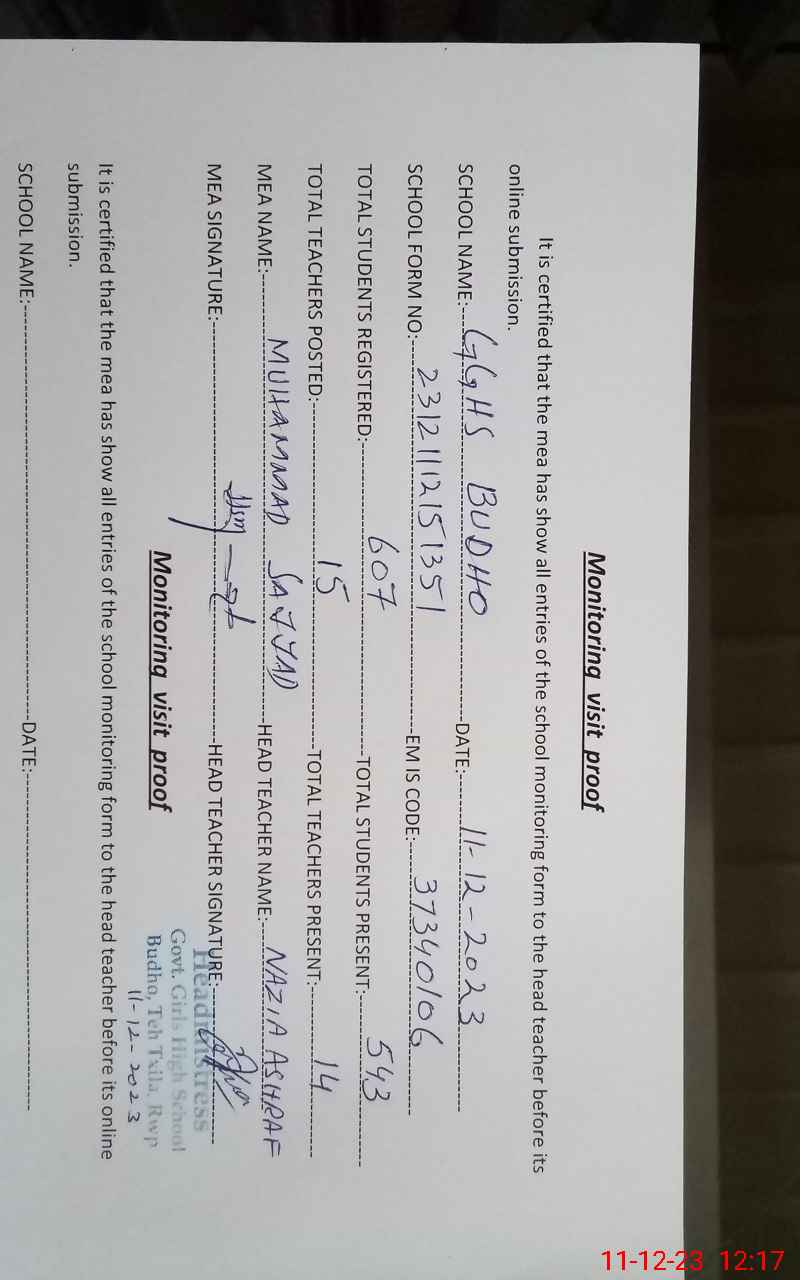 Monitoring visit proof
It is certified that the mea has show all entries of the school monitoring form to the head teacher before its
online submission.
SCHOOL NAME:- GGHS BUDHO DATE:- 11-12-2023
SCHOOL FORM NO:- 23121112151351 EM IS CODE:- 37340106
TOTAL STUDENTS REGISTERED:- 607 TOTAL STUDENTS PRESENT:- 543
TOTAL TEACHERS POSTED:- 15 TOTAL TEACHERS PRESENT:- 14
MEA NAME:- MUHAMMAD SAJJAD HEAD TEACHER NAME:- NAZIA ASHRAF
MEA SIGNATURE:- HEAD TEACHER SIGNATURE:-
Headmistress
Govt. Girls High School
Budho, Teh Txila, Rwp
11-12-2023
Monitoring visit proof
It is certified that the mea has show all entries of the school monitoring form to the head teacher before its online
submission.
SCHOOL NAME:- DATE:-
11-12-23 12:17